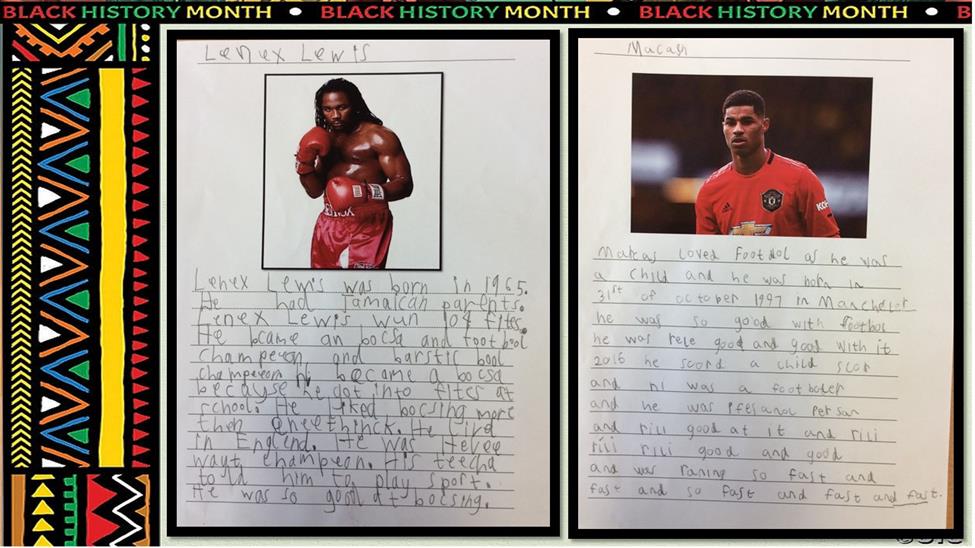 BLACK HISTORY MONTH • BLACK HISTORY MONTH • BLACK HISTORY MONTH • B
Lenex Lewis
LENOX
Lenex Lewis was born in 1965.
He had Jamaican parents.
Lenex Lewis wun 104 fites.
He bcame an bocsa and football
champeon and barstic bool
champeon hi became a bocsa
becayse he got into fites at
school. He liked bocsing more
then eneethinck. He livd
in England. He was Hevee
wayt champeon. His teecha
tould him to play sport.
He was so good at bocsing.
Macash
Marcas loved footbol as he was
a child and he was born in
31st of october 1997 in Manchester
he was so good with footbol
he was rele good and good with it
2016 he scord a child scor
and hi was a footboler
and he was
and rili good at it and rili
rili rili good and good
and was raning so fast and
fast and so fast and fast and fast.